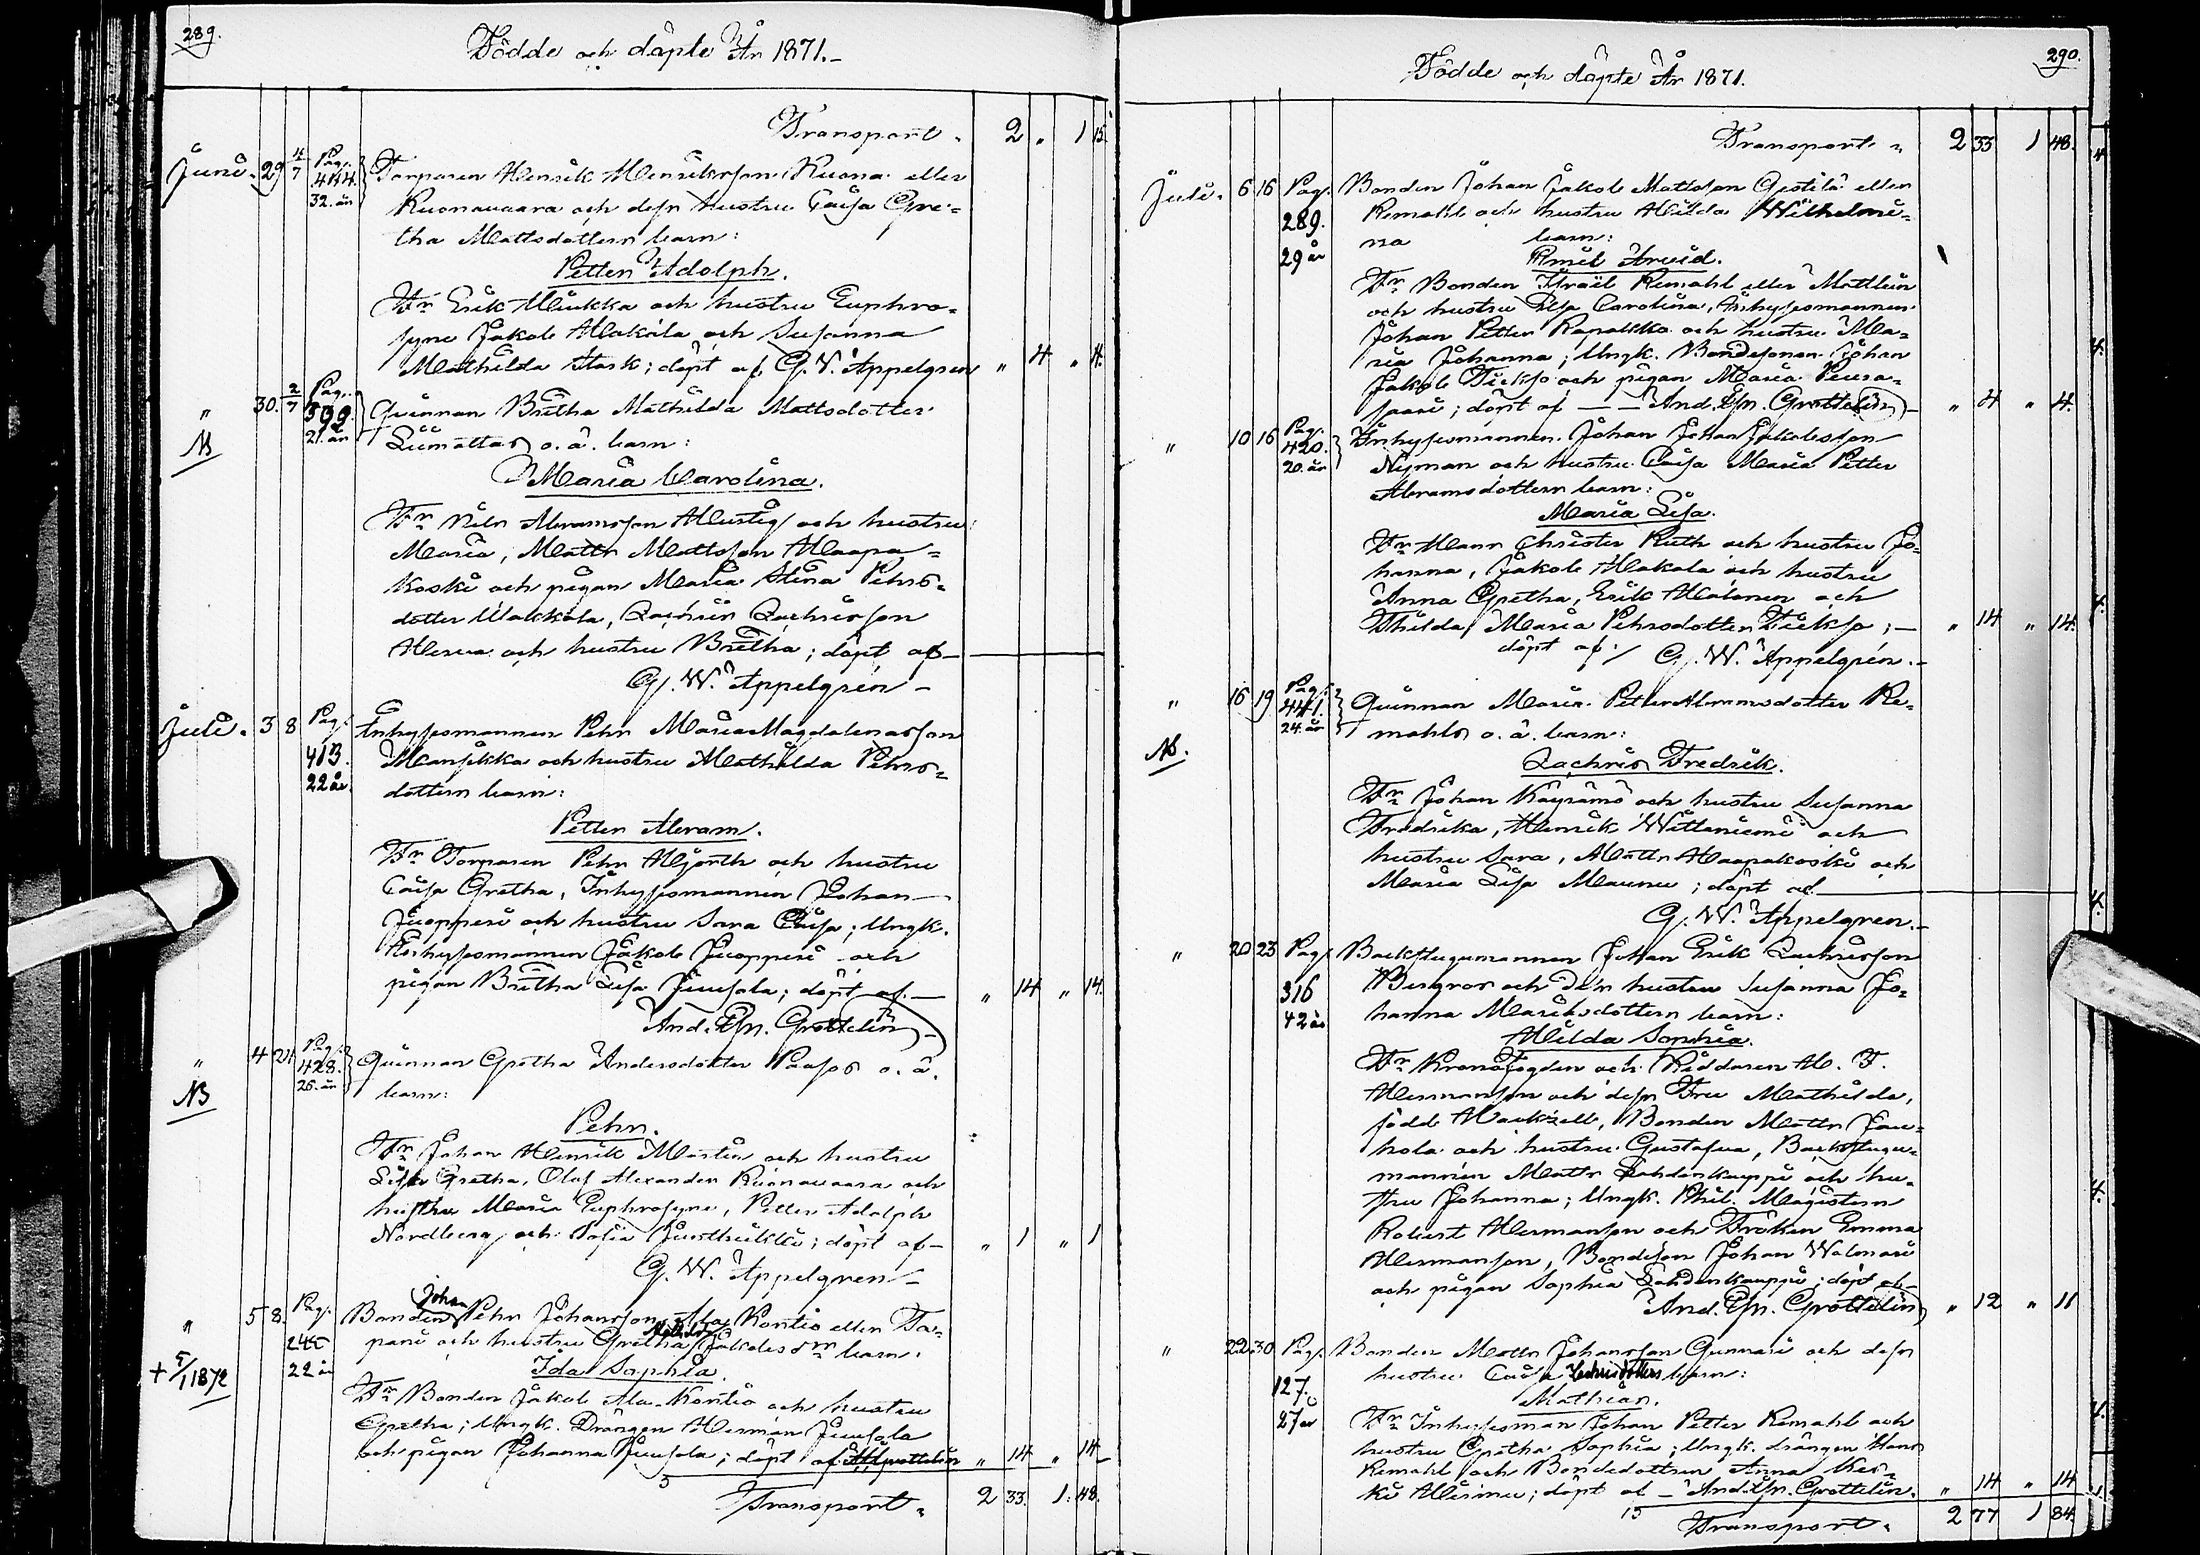 289.
Födde och döpte År 1871.-
Transport " 2 " 1 15
Juni. 29 11/7 Pag. 444. 32. år Torparen Henrik Henriksson Kuona eller
Kuonavaara och dess hustru Caisa Gre=
tha Mattsdotters barn:
Petter Adolph.
Fr. Erik Hiukka och hustru Euphro=
syne Jakob Alakola och Susanna
Mathilda Stark; döpt af G. W. Appelgren " 4 " 4.
" 30. 2/7 Pag. 399. 21. år Quinnan Britha Mathilda Mattsdotter
NB
Liimattas o. ä. barn:
Maria Carolina.
Fr. Nils Abramsson Hurtig och hustru
Maria, Matts Mattsson Haapa=
koski och pigan Maria Stina Pehrs=
dotter Alakkola, Zachris Zachrisson
Herva och hustru Britha; döpt af
G. W. Appelgren -
Juli. 3 8 Pag. 413. 22 år Inhysesmannen Pehr Maria Magdalenasson
Mansikka och hustru Mathilda Pehrs=
dotters barn:
Petter Abram.
Fr. Torparen Pehr Hjorth och hustru
Caisa Gretha, Inhysesmannen Johan
Juopperi och hustru Sara Caisa; Ungk.
Inhysesmannen Jakob Juopperi och
pigan Britha Lisa Juusola; döpt af " 14 " 14.
And. Joh. Grottelin -
" 4 21 Pag. 428. 26. år Quinnan Gretha Andersdotter Paasos o. ä.
NB
barn:
Pehr.
Fr. Johan Henrik Martin och hustru
Lisa Gretha, Olof Alexander Kuonavaara och
hustru Maria Euphrosyne, Petter Adolph
Nordberg och Sofia ; döpt af " 1 " 1
G. W. Appelgren -
" 5 8. Pag. 245 22 år Bonden Johan Pehr Johansson Ala Kontio eller Ta=
pani och hustru Gretha Jakobsdrs barn.
+ 5/1 1872
Ida Sophia.
Fr. Bonden Jakob Ala Kontio och hustru
Gretha; Ungk. Drängen Herman Juusola
och pigan Johanna Juusola; döpt af Grottelin " 14 " 14
5
Transport " 2 33. 1. 48.
290.
Födde och döpte År 1871.
Transport " 2 33 1 48.
Juli. 6 16 Pag. 289. 29 år Bonden Johan Jakob Mattsson eller
Remahl och hustru Hilda Wilhelmi=
na barn:
Emil Arvid.
Fr. Bonden Israel Remahl eller Mattlin
och hustru Elsa Carolina, Inhysesmannen
Johan Petter Rapakko och hustru Ma=
ria Johanna; Ungk. Bondesonen Johan
Jakob Tiikso och pigan Maria Peura=
saari; döpt af - - And. Joh. Grottelin - " 4 " 4.
" 10 16 Pag. 420. 20. år Inhysesmannen Johan Johan Jakobsson
Nyman och hustru Caisa Maria Petter
Abramsdotters barn:
Maria Lisa.
Fr. Hans Christer Ruth och hustru Jo=
hanna, Jakob Alakola och hustru
Anna Gretha, Erik Halonen och
Thilda Maria Pehrsdotter Tiikso; - " 14 " 14.
döpt af ./ G. W. Appelgren. -
" 16 19 Pag. 441. 24. år Quinnan Maria Petter Abramsdotter Re=
mahls o. ä. barn:
NB.
Zachris Fredrik.
Fr. Johan Käyrämö och hustru Susanna
Fredrika, Henrik Wittaniemi och
hustru Sara, Matts Haapakoski och
Maria Lisa Maunu; döpt af
G. W. Appelgren. -
" 20 23 Pag. 316 42 år Backstugumannen Johan Erik Zachrisson
Bergros och dess hustru Susanna Jo=
hanna Mariksdotters barn:
Hilda Sophia.
Fr. Kronofogden och Riddaren H. F.
Hermanson och dess Fru Mathilda,
född Hackzell, Bonden Matts Jau=
hola och hustru Gustafva, Backstugu=
mannen Matts Lahdenkauppi och hu=
stru Johanna; Ungk. Phil. Magistern
Robert Hermanson och Fröken Emma
Hermanson, Bondeson Johan Walmari
och pigan Sophia Lahdenkauppi; döpt af
And. Joh. Grottelin " 12 " 11
" 22 30 Pag. 127. 27 år Bonden Matts Johansson Gunnari och dess
hustru Caisa barn:
Mathias.
Fr. Inhysesman Johan Petter Remahl och
hustru Gretha Sophia; Ungk. Drängen Hans
Remahl och Bondedottren Anna Kes=
ki Hirmu; döpt af - And. Joh. Grottelin. " 14 " 14
15
Transport " 2 77 1 84.